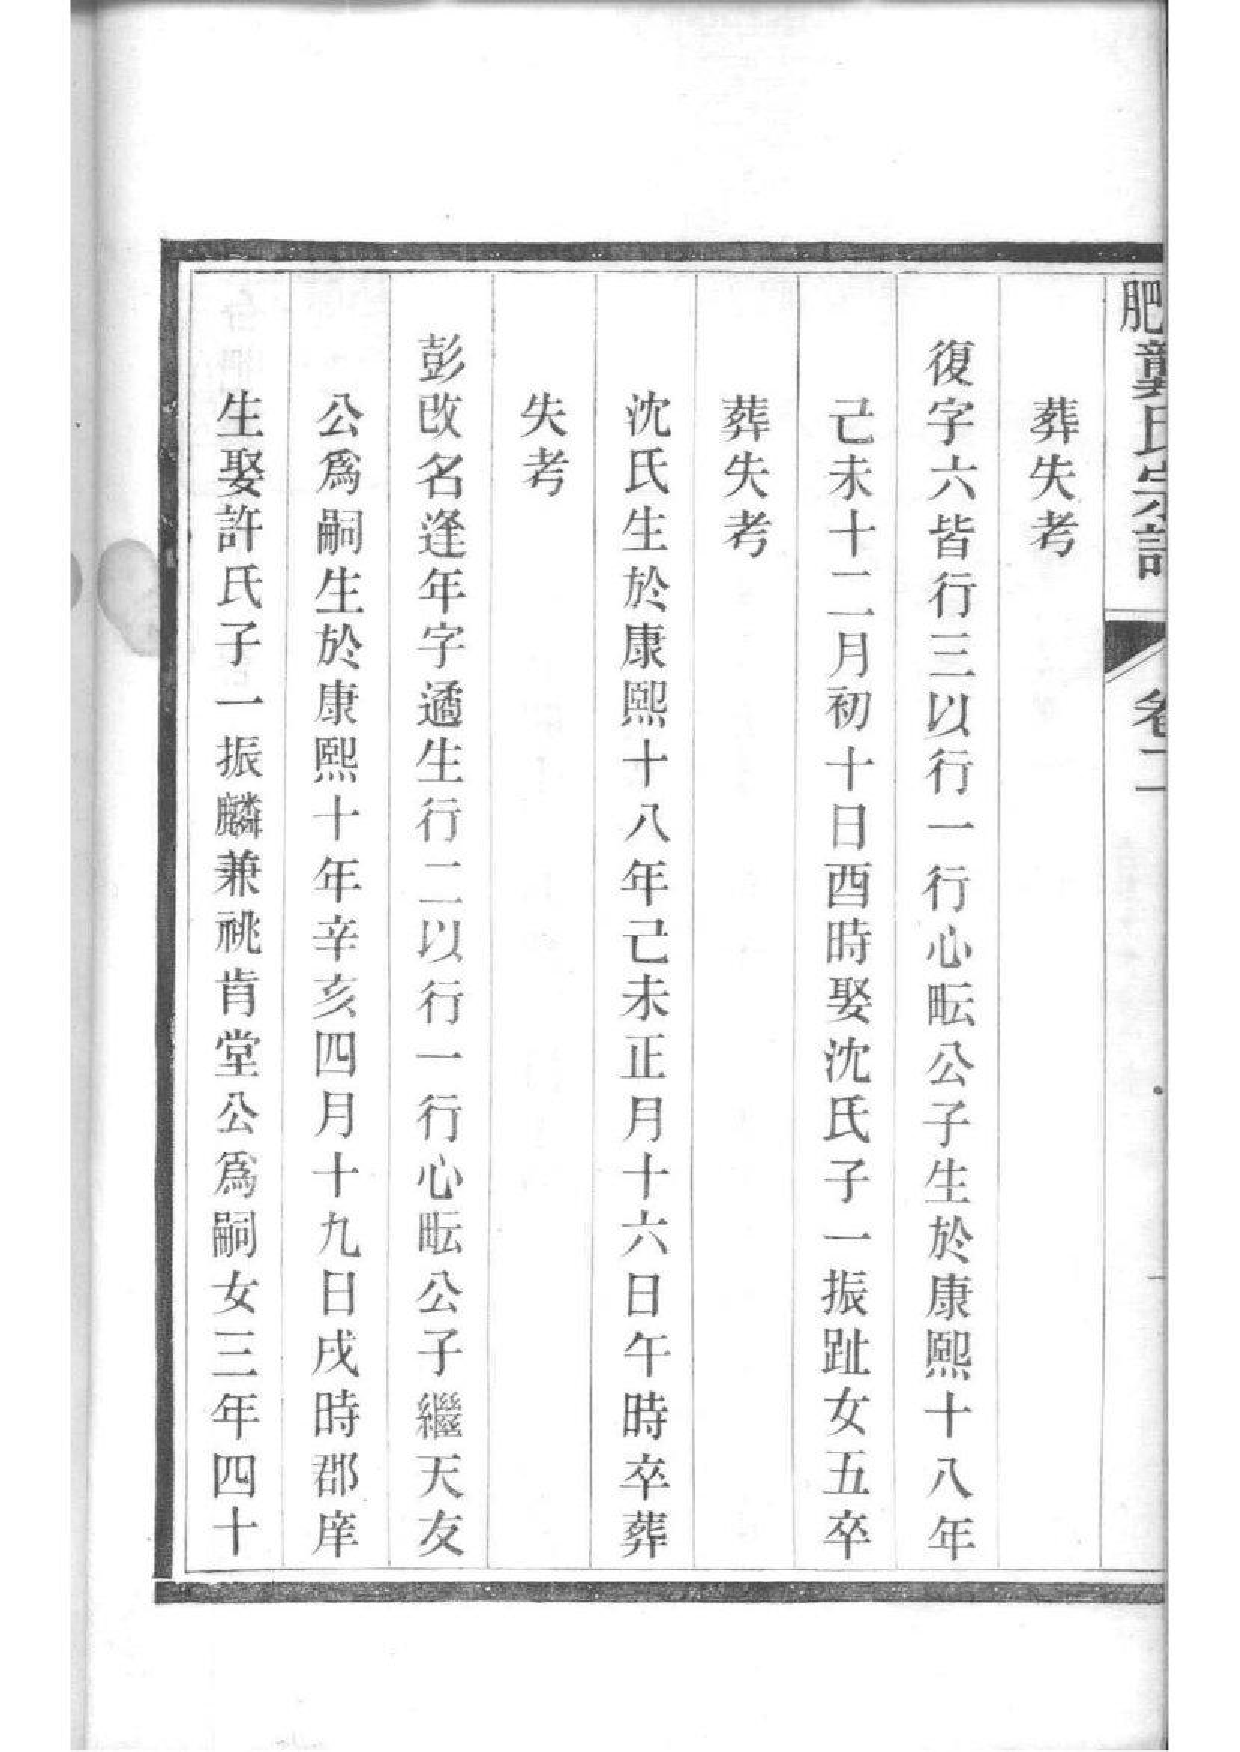 肥龔氏宗譜
卷二
葬失考
復字六皆行三以行一行心畊公子生於康熙十八年
己未十二月初十日酉時娶沈氏子一振趾女五卒
葬失考
沈氏生於康熙十八年己未正月十六日午時卒葬
失考
彭改名逢年字遹生行二以行一行心畊公子繼天友
公爲嗣生於康熙十年辛亥四月十九日戌時郡庠
生娶許氏子一振麟兼祧肯堂公爲嗣女三年四十